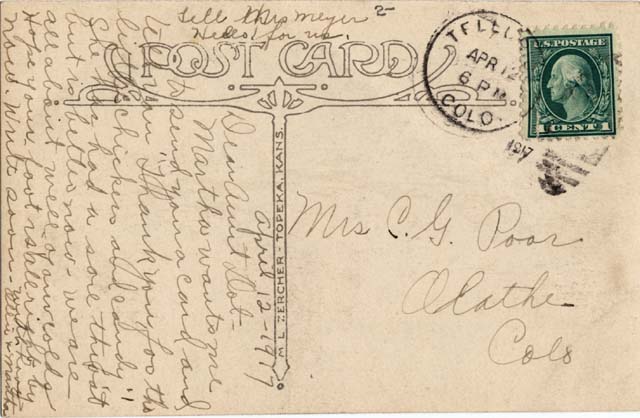 Tell Mrs Meyer
Hello! for us.
2-
POST CARD
TELLU
APR 12
6 PM
COLO.
1917
U.S. POSTAGE
1 CENT 1
M. L. ZERCHER - TOPEKA, KANS.
April 12-1917
Dear Aunt Dot-
Martha wants me
to send you a card and
tell you "Thank you for the
little chickies and candy"!
She has had a sore throat
but is better now- we are
all about well of our colds
Hope your foot is better by
now. Write soon-
Mrs C. G. Poor
Olathe
Colo